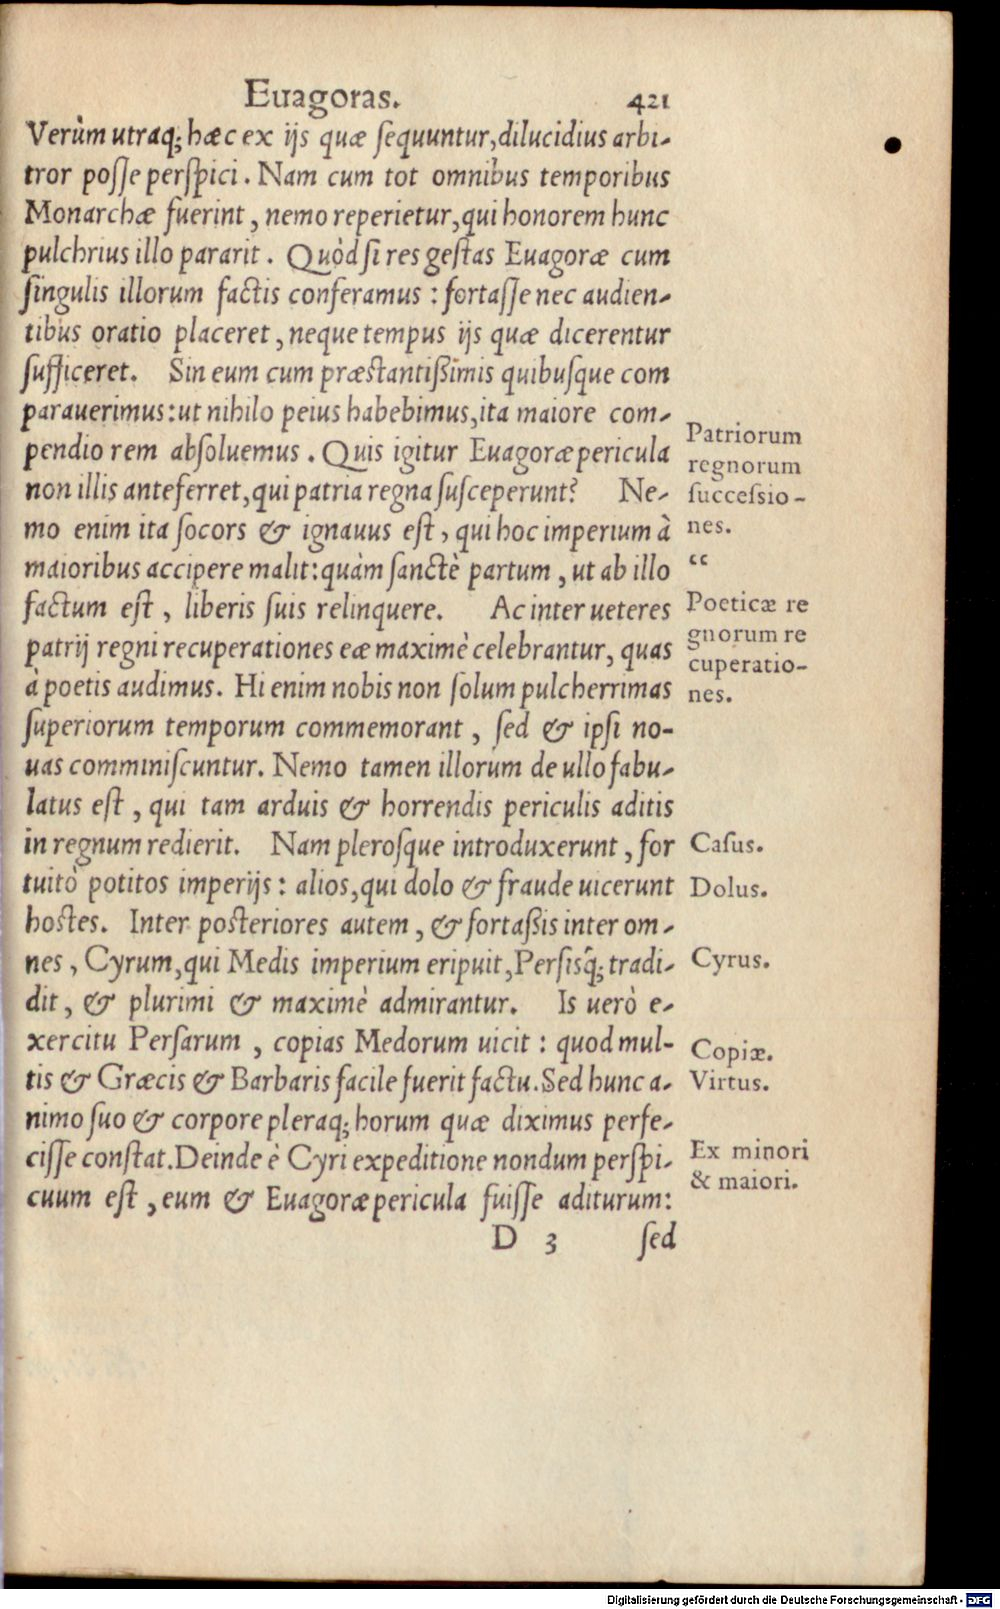 Euagoras. 421
Verùm utraq; hæc ex ijs quæ ſequuntur, dilucidius arbi-
tror poſſe perſpici. Nam cum tot omnibus temporibus
Monarchæ fuerint, nemo reperietur, qui honorem hunc
pulchrius illo pararit. Quòd ſi res geſtas Euagoræ cum
ſingulis illorum factis conferamus: fortaſſe nec audien-
tibus oratio placeret, neque tempus ijs quæ dicerentur
ſufficeret. Sin eum cum præſtantißimis quibuſque com
parauerimus: ut nihilo peius habebimus, ita maiore com-
pendio rem abſoluemus. Quis igitur Euagoræ pericula
non illis anteferret, qui patria regna ſuſceperunt? Ne-
mo enim ita ſocors & ignauus eſt, qui hoc imperium à
maioribus accipere malit: quàm ſanctè partum, ut ab illo
factum eſt, liberis ſuis relinquere. Ac inter ueteres
patrij regni recuperationes eæ maximè celebrantur, quas
à poetis audimus. Hi enim nobis non ſolum pulcherrimas
ſuperiorum temporum commemorant, ſed & ipſi no-
uas comminiſcuntur. Nemo tamen illorum de ullo fabu-
latus eſt, qui tam arduis & horrendis periculis aditis
in regnum redierit. Nam pleroſque introduxerunt, for
tuitò potitos imperijs: alios, qui dolo & fraude uicerunt
hoſtes. Inter poſteriores autem, & fortaßis inter om-
nes, Cyrum, qui Medis imperium eripuit, Perſisq́; tradi-
dit, & plurimi & maximè admirantur. Is uerò e-
xercitu Perſarum, copias Medorum uicit: quod mul-
tis & Græcis & Barbaris facile fuerit factu. Sed hunc a-
nimo ſuo & corpore pleraq; horum quæ diximus perfe-
ciſſe conſtat. Deinde è Cyri expeditione nondum perſpi-
cuum eſt, eum & Euagoræ pericula fuiſſe aditurum:
D 3 ſed
Patriorum
regnorum
ſucceſsio-
nes.
“
Poeticæ re
gnorum re
cuperatio-
nes.
Caſus.
Dolus.
Cyrus.
Copiæ.
Virtus.
Ex minori
& maiori.
Digitalisierung gefördert durch die Deutsche Forschungsgemeinschaft - DFG